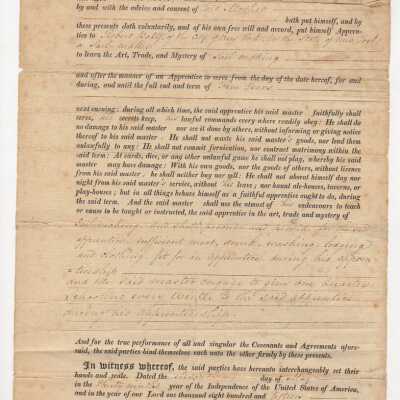 by and with the advice and consent of his Mother
hath put himself, and by
these presents doth voluntarily, and of his own free will and accord, put himself Appren-
tice to of the City of New York in the State of New York
a Sail maker
to learn the Art, Trade, and Mystery of Sail making
and after the manner of an Apprentice to serve from the day of the date hereof, for and
during, and until the full end and term of Years
next ensuing: during all which time, the said apprentice his said master faithfully shall
serve, his secrets keep, his lawful commands every where readily obey: He shall do
no damage to his said master nor see it done by others, without informing or giving notice
thereof to his said master. He shall not waste his said master's goods, nor lend them
unlawfully to any: He shall not commit fornication, nor contract matrimony within the
said term: At cards, dice, or any other unlawful game he shall not play, whereby his said
master may have damage: With his own goods, nor the goods of others, without licence
from his said master he shall neither buy nor sell: He shall not absent himself day nor
night from his said master's service, without his leave; nor haunt ale-houses, taverns, or
play-houses; but in all things behave himself as a faithful apprentice ought to do, during
the said term. And the said master shall use the utmost of his endeavours to teach
or cause to be taught or instructed, the said apprentice in the art, trade and mystery of
Sailmaking and for the said
apprentice sufficient meat, drink, washing lodging
and clothing fit for an apprentice during his appren
ticeship
and the said master engages to give one quarters
schooling every winter to the said apprentice
during his apprenticeship
And for the true performance of all and singular the Covenants and Agreements afore-
said, the said parties bind themselves each unto the other firmly by these presents.
In witness whereof, the said parties have hereunto interchangeably set their
hands and seals. Dated the day of May
in the year of the Independence of the United States of America,
and in the year of our Lord one thousand eight hundred and fifteen